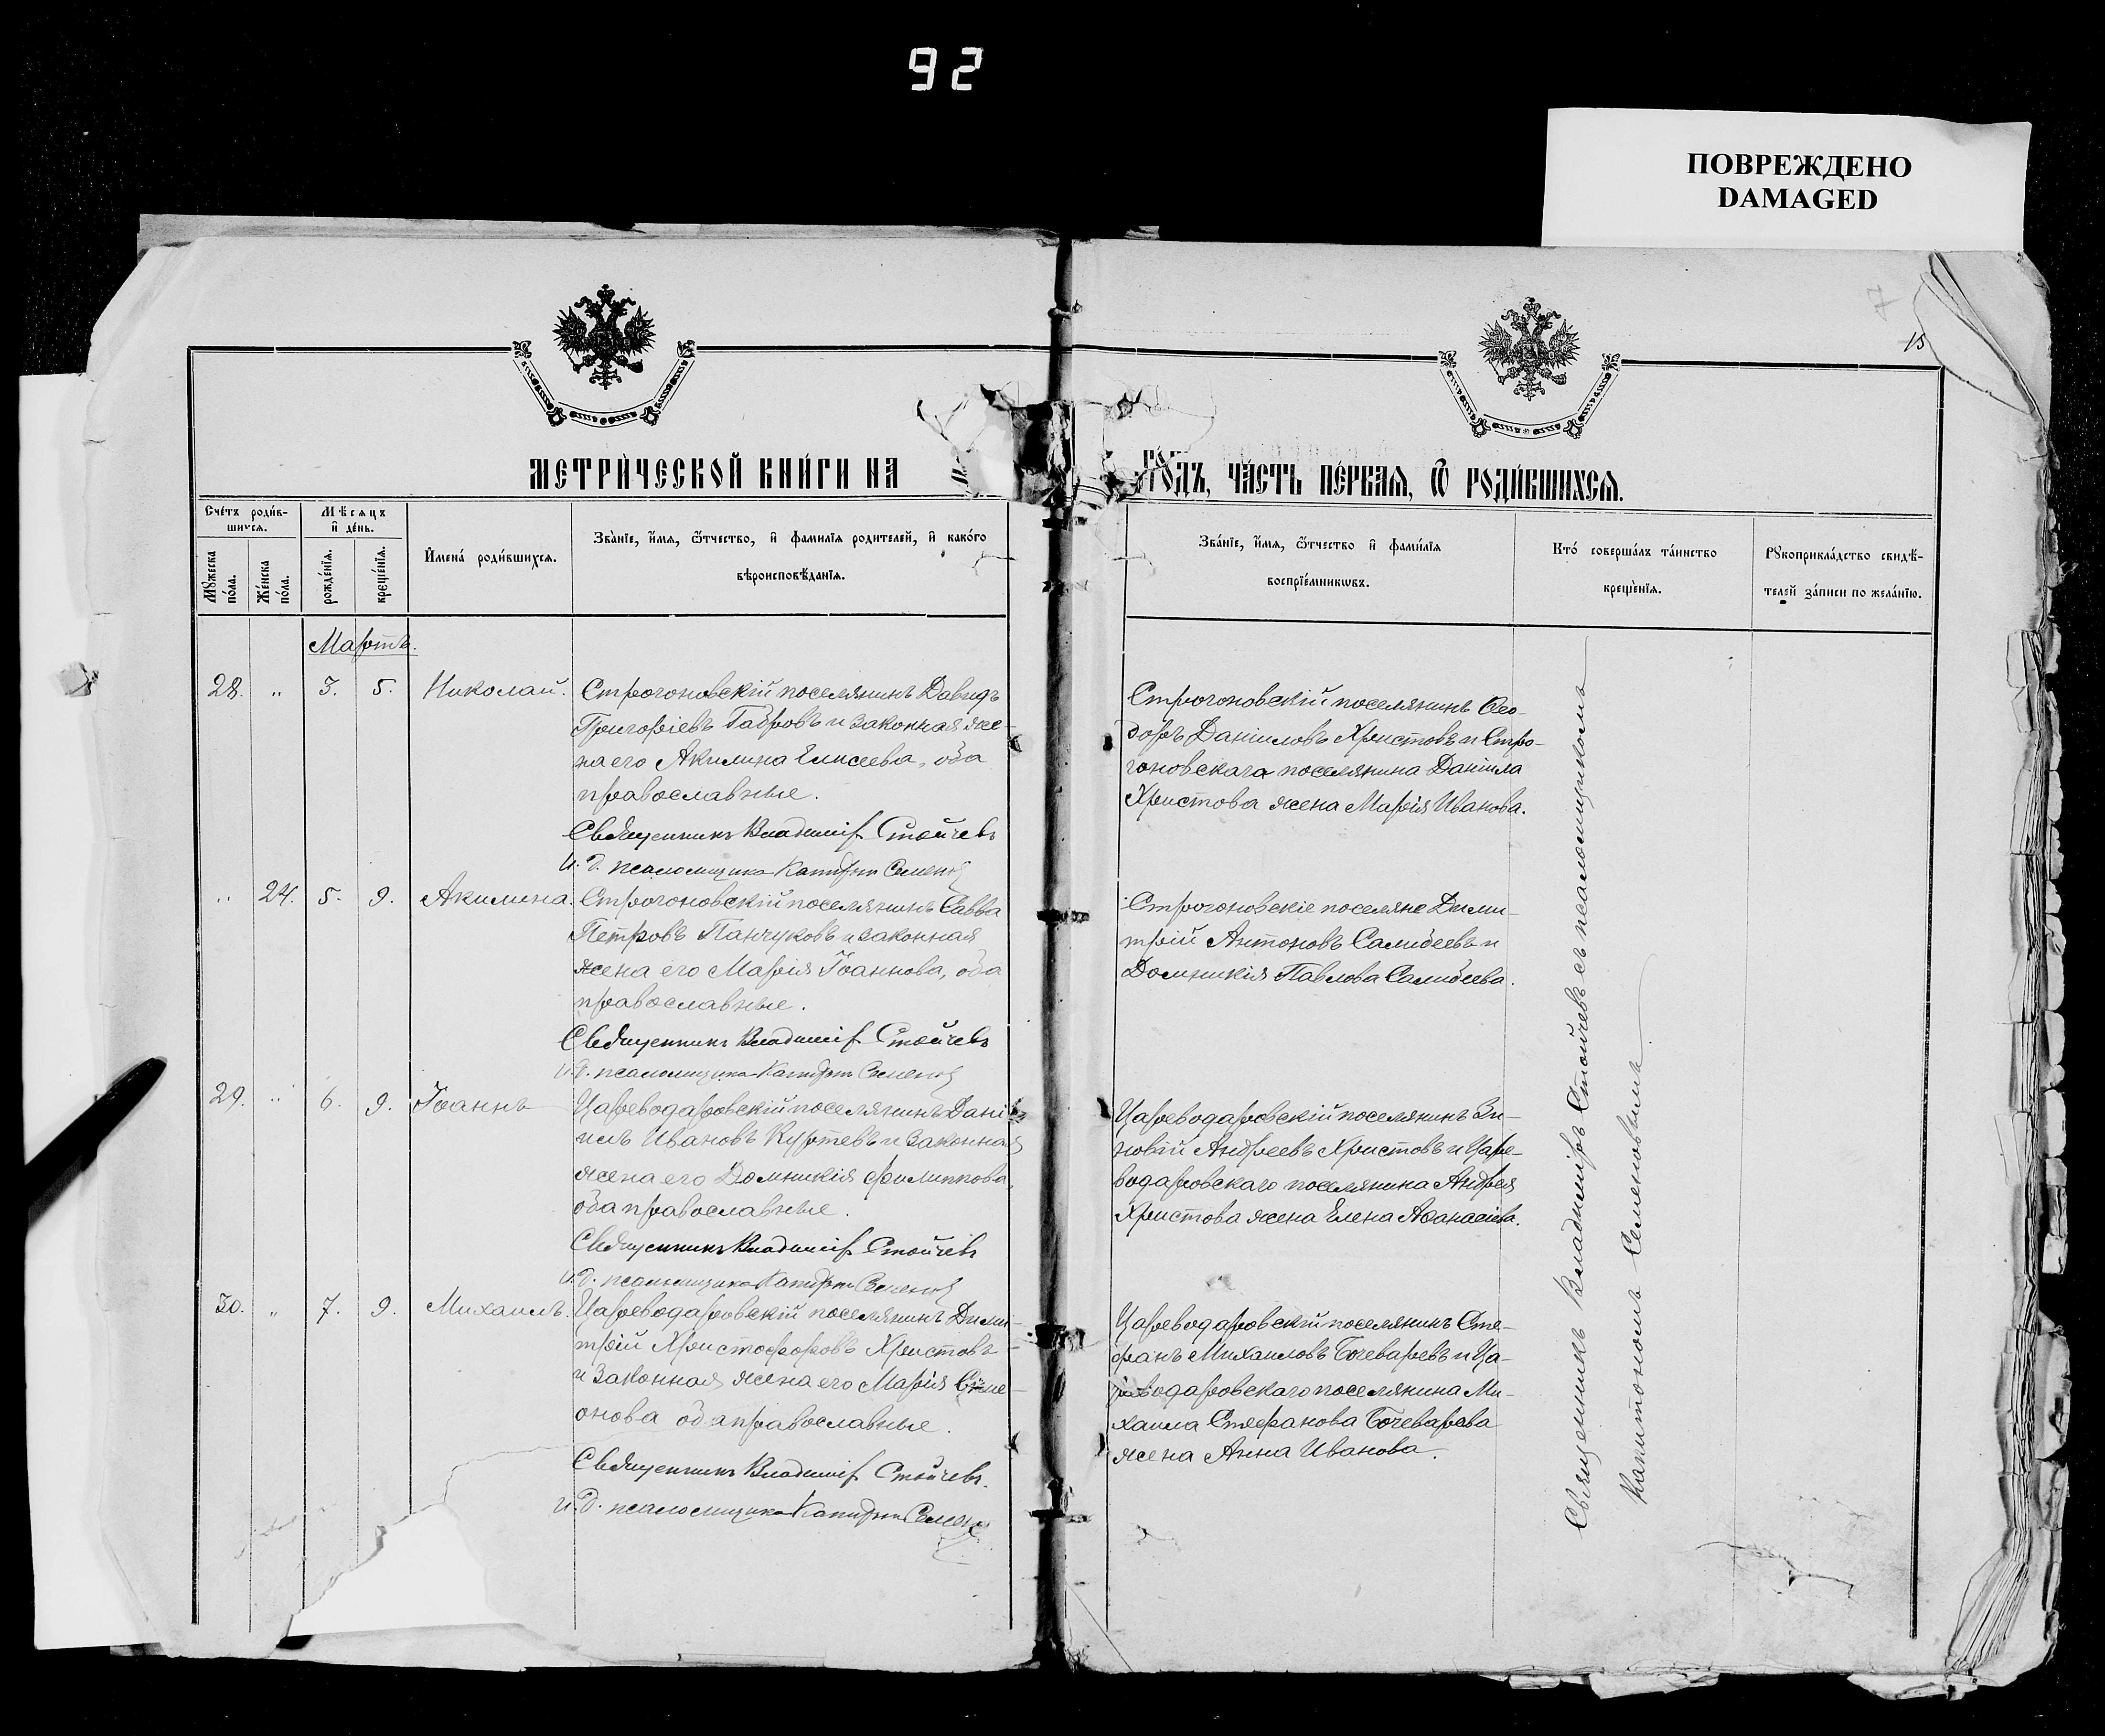 92
ПОВРЕЖДЕНО
DAMAGED
15
МЕТРИ́ЧЕСКОЙ КНИ́ГИ НА
ГОДЪ, ЧА́СТЬ ПЕ́РВАЯ, Ѿ РОДИ́ВШИХСЯ.
Сче́тъ роди́в-
шихся.
Мѣсяцъ
и҆ де́нь.
Мꙋжеска по́ла.
Же́нска по́ла.
рожде́нїя.
креще́нїя.
И҆мена́ роди́вшихся.
Зва́нїе, и҆́мя, ѻ҆́тчество, и҆ фамилїя родителей, и҆ како́го
вѣроисповѣ́данїя.
Зва́нїе, и҆́мя, ѻ҆́тчество и҆ фами́лїя
воспрїе́мникѡвъ.
Кто́ соверша́лъ та́инство
креще́нїя.
Рꙋкоприкла́дство свидѣ́-
телей за́писи по жела́нїю.
Мартъ.
28. „ 3. 5. Николай.
Строгоновскій поселянинъ Давидъ
Григоріевъ Гайровъ и законная же-
на его Акилина Елисеева, оба
православные.
Священникъ Владиміръ Стойчевъ
И. д. псаломщика Капитонъ Семеновъ
Строгоновскій поселянинъ Ѳео-
доръ Даніиловъ Христовъ и Стро-
гоновскаго поселянина Даніила
Христова жена Марія Иванова.
„ 24. 5. 9. Акилина.
Строгоновскій поселянинъ Савва
Петровъ Панчуковъ и законная
жена его Марія Іоаннова, оба
православные.
Священникъ Владиміръ Стойчевъ
и. д. псаломщика Капитонъ Семеновъ
Строгоновскіе поселяне Дими-
трій Антоновъ Салибеевъ и
Домникія Павлова Салибеева.
29. „ 6. 9. Іоаннъ
Цареводаровскій поселянинъ Дані-
илъ Ивановъ Куртевъ и законная
жена его Домникія Филиппова,
оба православные.
Священникъ Владиміръ Стойчевъ
и. д. псаломщика Капитонъ Семеновъ
Цареводаровскій поселянинъ Зи-
новій Андреевъ Христовъ и Царе-
водаровскаго поселянина Андрея
Христова жена Елена Аѳанасіева.
30. „ 7. 9. Михаилъ.
Цареводаровскій поселянинъ Дими-
трій Христофоровъ Христовъ
и законная жена его Марія Симе-
онова оба православные.
Священникъ Владиміръ Стойчевъ.
и. д. псаломщика Капитонъ Семеновъ
Цареводаровскій поселянинъ Сте-
фанъ Михаиловъ Бочеваревъ и Ца-
реводаровскаго поселянина Ми-
хаила Стефанова Бочеварева
жена Анна Иванова.
Священникъ Владиміръ Стойчевъ съ псаломщикомъ
Капитономъ Семеновымъ